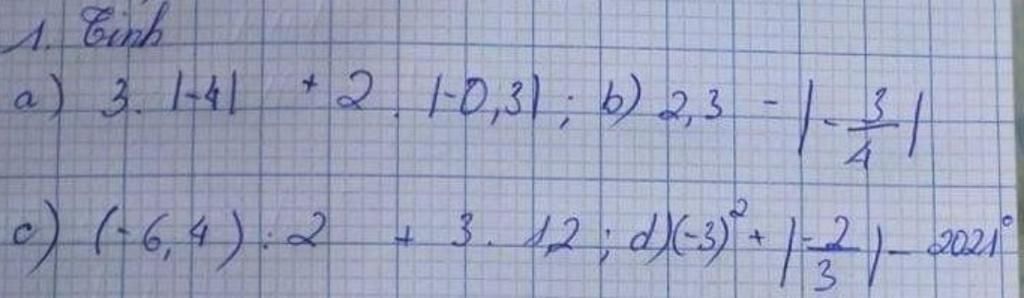 1. Tính
a) 3. |-4| + 2 . |-0,3| ; b) 2,3 - |-3/4|
c) (-6,4) : 2 + 3 . 1,2 ; d) (-3)² + |-2/3| - 2021⁰